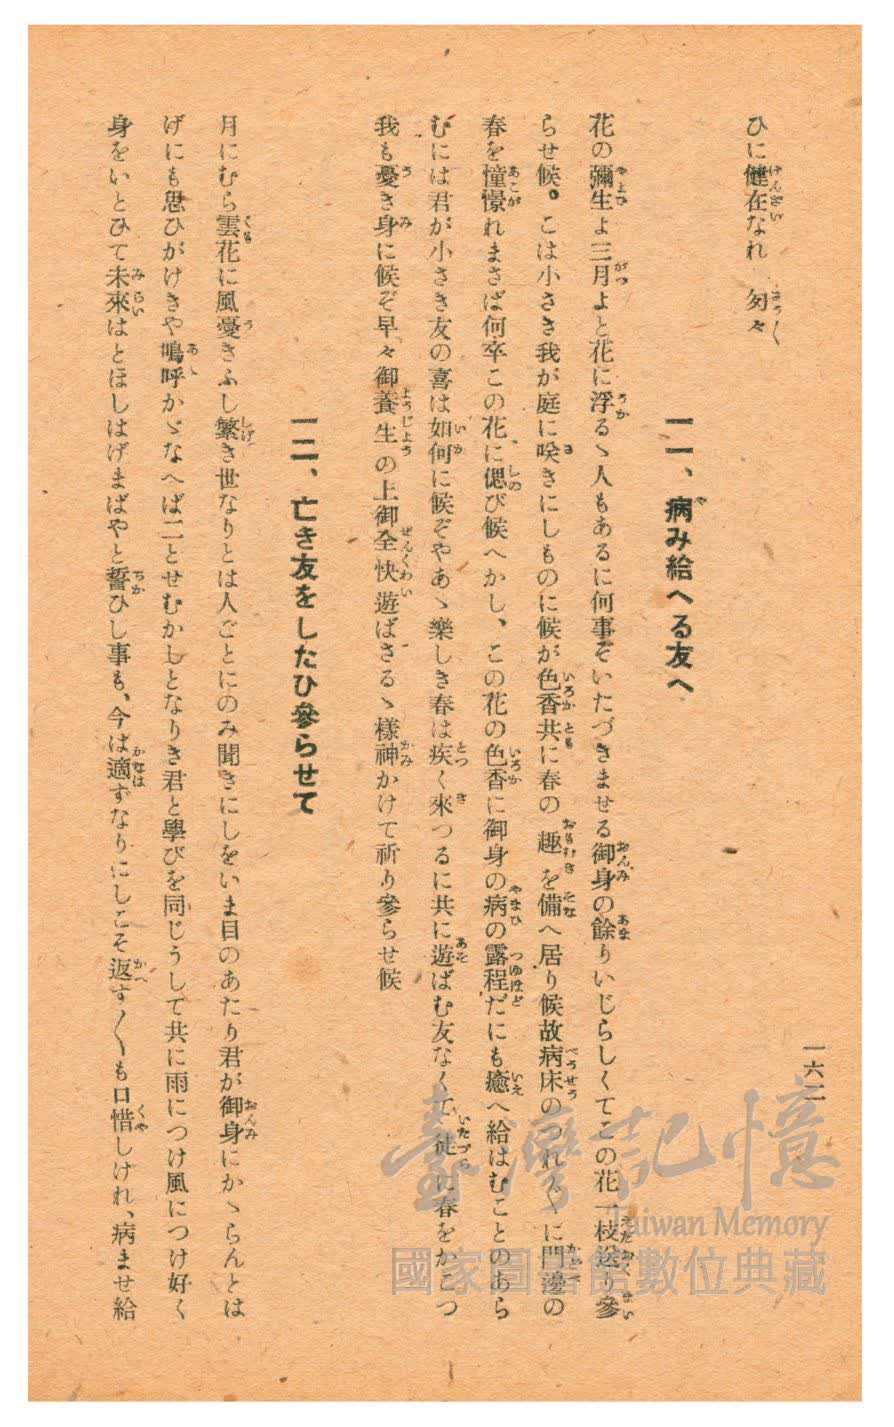 一六二
ひに健在なれ 匆々
一一、病み給へる友へ
花の彌生よ三月よと花に浮るゝ人もあるに何事ぞいたづきませる御身の餘りいじらしくてこの花一枝送り參
らせ候。こは小さき我が庭に咲きにしものに候が色香共に春の趣を備へ居り候故病床のつれ〲に門邊の
春を憧憬れまさば何卒この花に偲び候へかし、この花の色香に御身の病の露程だにも癒へ給はむことのあら
むには君が小さき友の喜は如何に候ぞやあゝ樂しき春は疾く來つるに共に遊ばむ友なくて徒に春をかこつ
我も憂き身に候ぞ早々御養生の上御全快遊ばさるゝ樣神かけて祈り參らせ候
一二、亡き友をしたひ參らせて
月にむら雲花に風憂きふし繁き世なりとは人ごとにのみ聞きにしをいま目のあたり君が御身にかゝらんとは
げにも思ひがけきや嗚呼かゞなへば二とせむかしとなりき君と學びを同じうして共に雨につけ風につけ好く
身をいとひて未來はとほしはげまばやと誓ひし事も、今は適ずなりにしこそ返す〱も口惜しけれ、病ませ給
臺灣記憶
Taiwan Memory
國家圖書館數位典藏